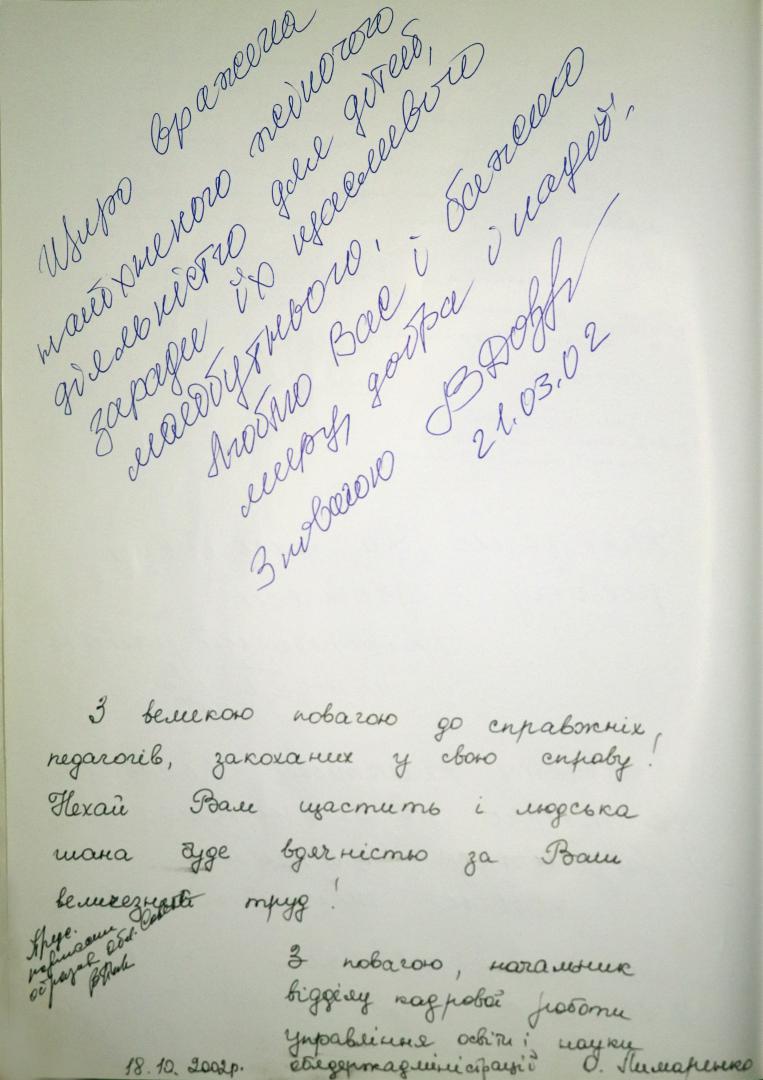 Щиро вражена
жіночого
діяльністю для дітей,
заради їх щасливого
майбутнього.
Люблю Вас і бажаю
миру, добра і надії,
З повагою
21.03.02
З великою повагою до справжніх,
педагогів, закоханих у свою справу!
Нехай Вам щастить і людська
шана буде вдячністю за Ваш
величезний труд!
З повагою, начальник
відділу кадрової роботи
управління освіти і науки
18.10.2002р. облдержадміністрації О. Пимаренко